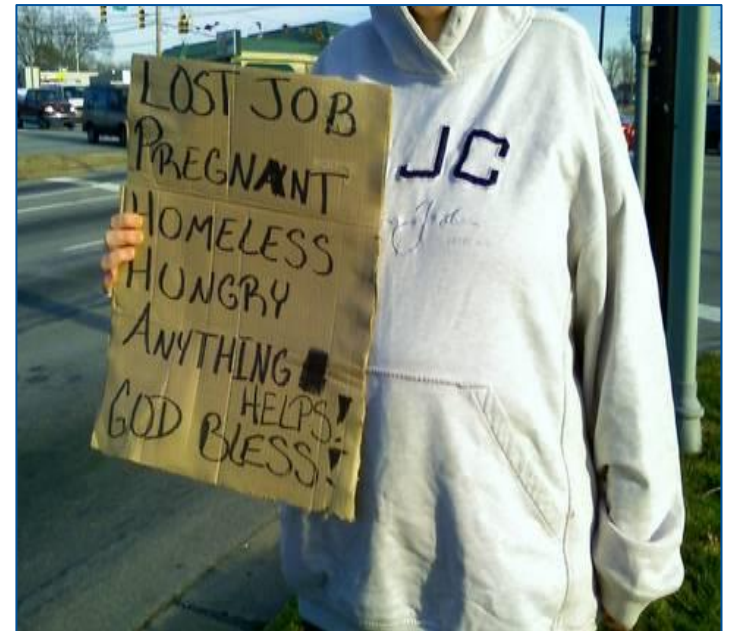 LOST JOB
PREGNANT
HOMELESS
HUNGRY
ANYTHING
HELPS!
GOD BLESS!
JC